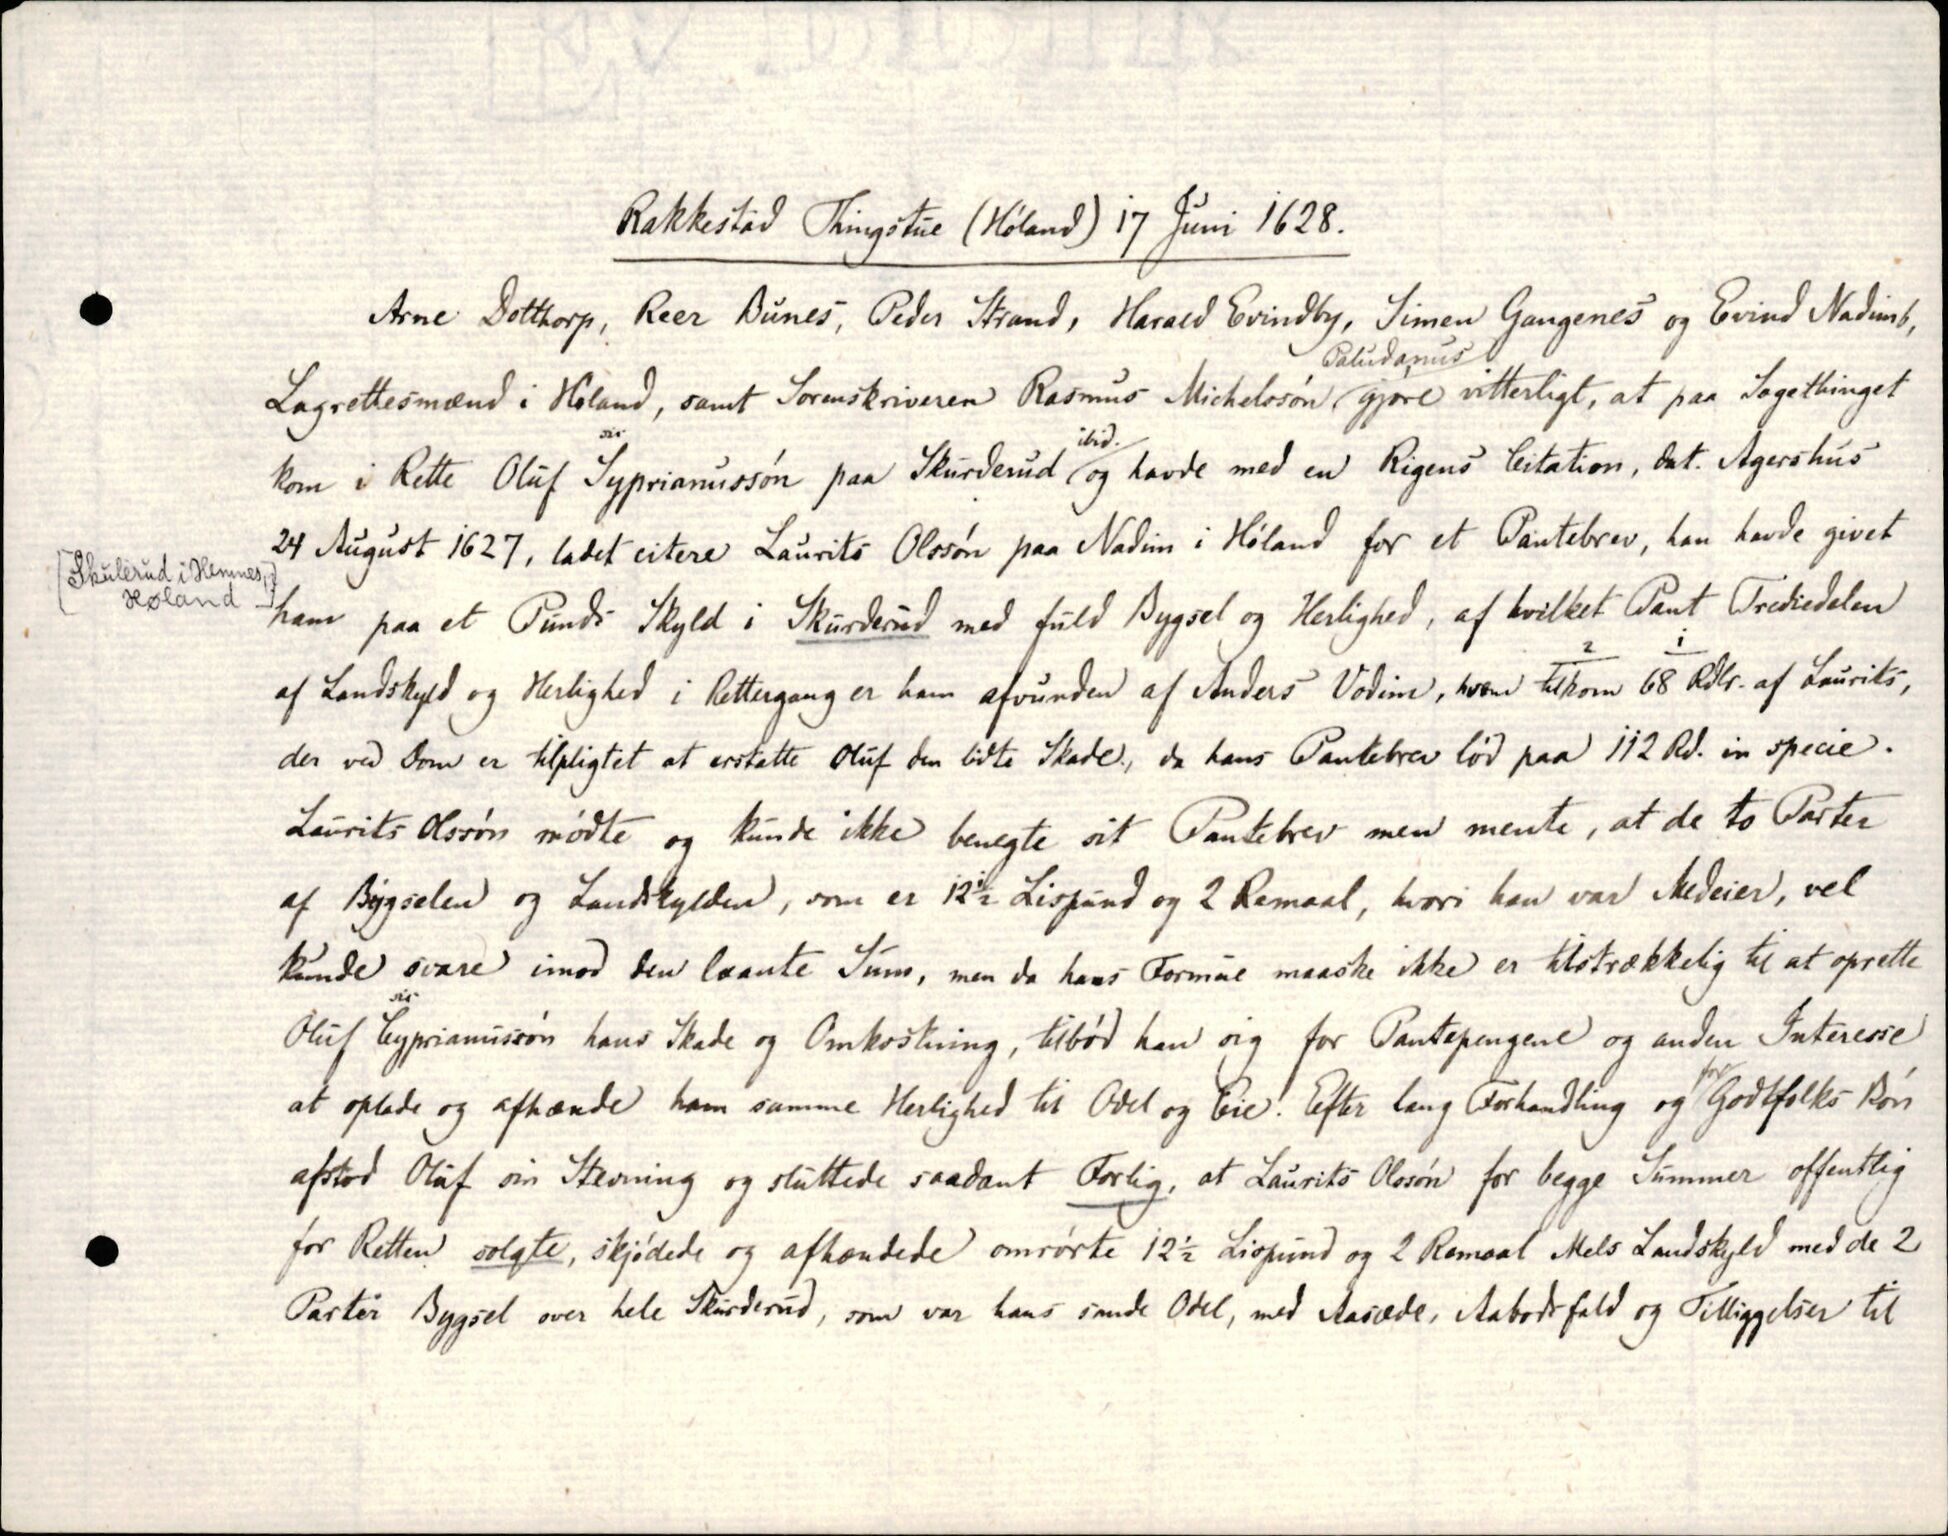 Rakkestad Thingstue (Höland) 17 Juni 1628.
Arne Dotthorp, Reer Bunes, Peder Strand, Harald Evindby, Simen Gangenes og Evind Nadimb,
Paludanus
Lagrettesmænd i Høland, samt Sorenskriveren Rasmus Michelssön gjöre vitterligt, at paa Sagethinget
sic ibid.
kom i Rette Oluf Syprianussön paa Skurderud og havde med en Rigens Citation, dat. Agershus
24 August 1627, ladet citere Laurits Olssön paa Nadim i Höland for et Pantebrev, han havde givet
[Skulerud i Hemnes, Høland]
ham paa et Punds Skyld i Skurderud med fuld Bygsel og Herlighed, af hvilket Pant Trediedelen
2 1
af Landskyld og Herlighed i Rettergang er ham afvunden af Anders Vodim, hvem tilkom 68 Rdlr. af Laurits,
der ved Dom er tilpligtet at erstatte Oluf den lidte Skade, da hans Pantebrev löd paa 112 Rd. in specie.
Laurits Olssön mödte og kunde ikke benegte sit Pantebrev men mente, at de to Parter
af Bygselen og Landskylden, som er 12½ Lispund og 2 Remaal, hvori han var Medeier, vel
kunde svare imod den laante Sum, men da hans Formue maaske ikke er tilstrækkelig til at oprette
sic
Oluf Cyprianussön hans Skade og Omkostning, tilböd han sig for Pantepengene og anden Interesse
at oplade og afhænde ham samme Herlighed til Odel og Eie. Efter lang Forhandling og for Godtfolks Bön
afstod Oluf sin Stevning og sluttede saadant Forlig, at Laurits Olssön for begge Summer offentlig
for Retten solgte, skjödede og afhændede omrörte 12½ Lispund og 2 Remaal Mels Landskyld med de 2
Parter Bygsel over hele Skurderud, som var hans sande Odel, med Aasæde, Aabodsfald og Tilliggelser til